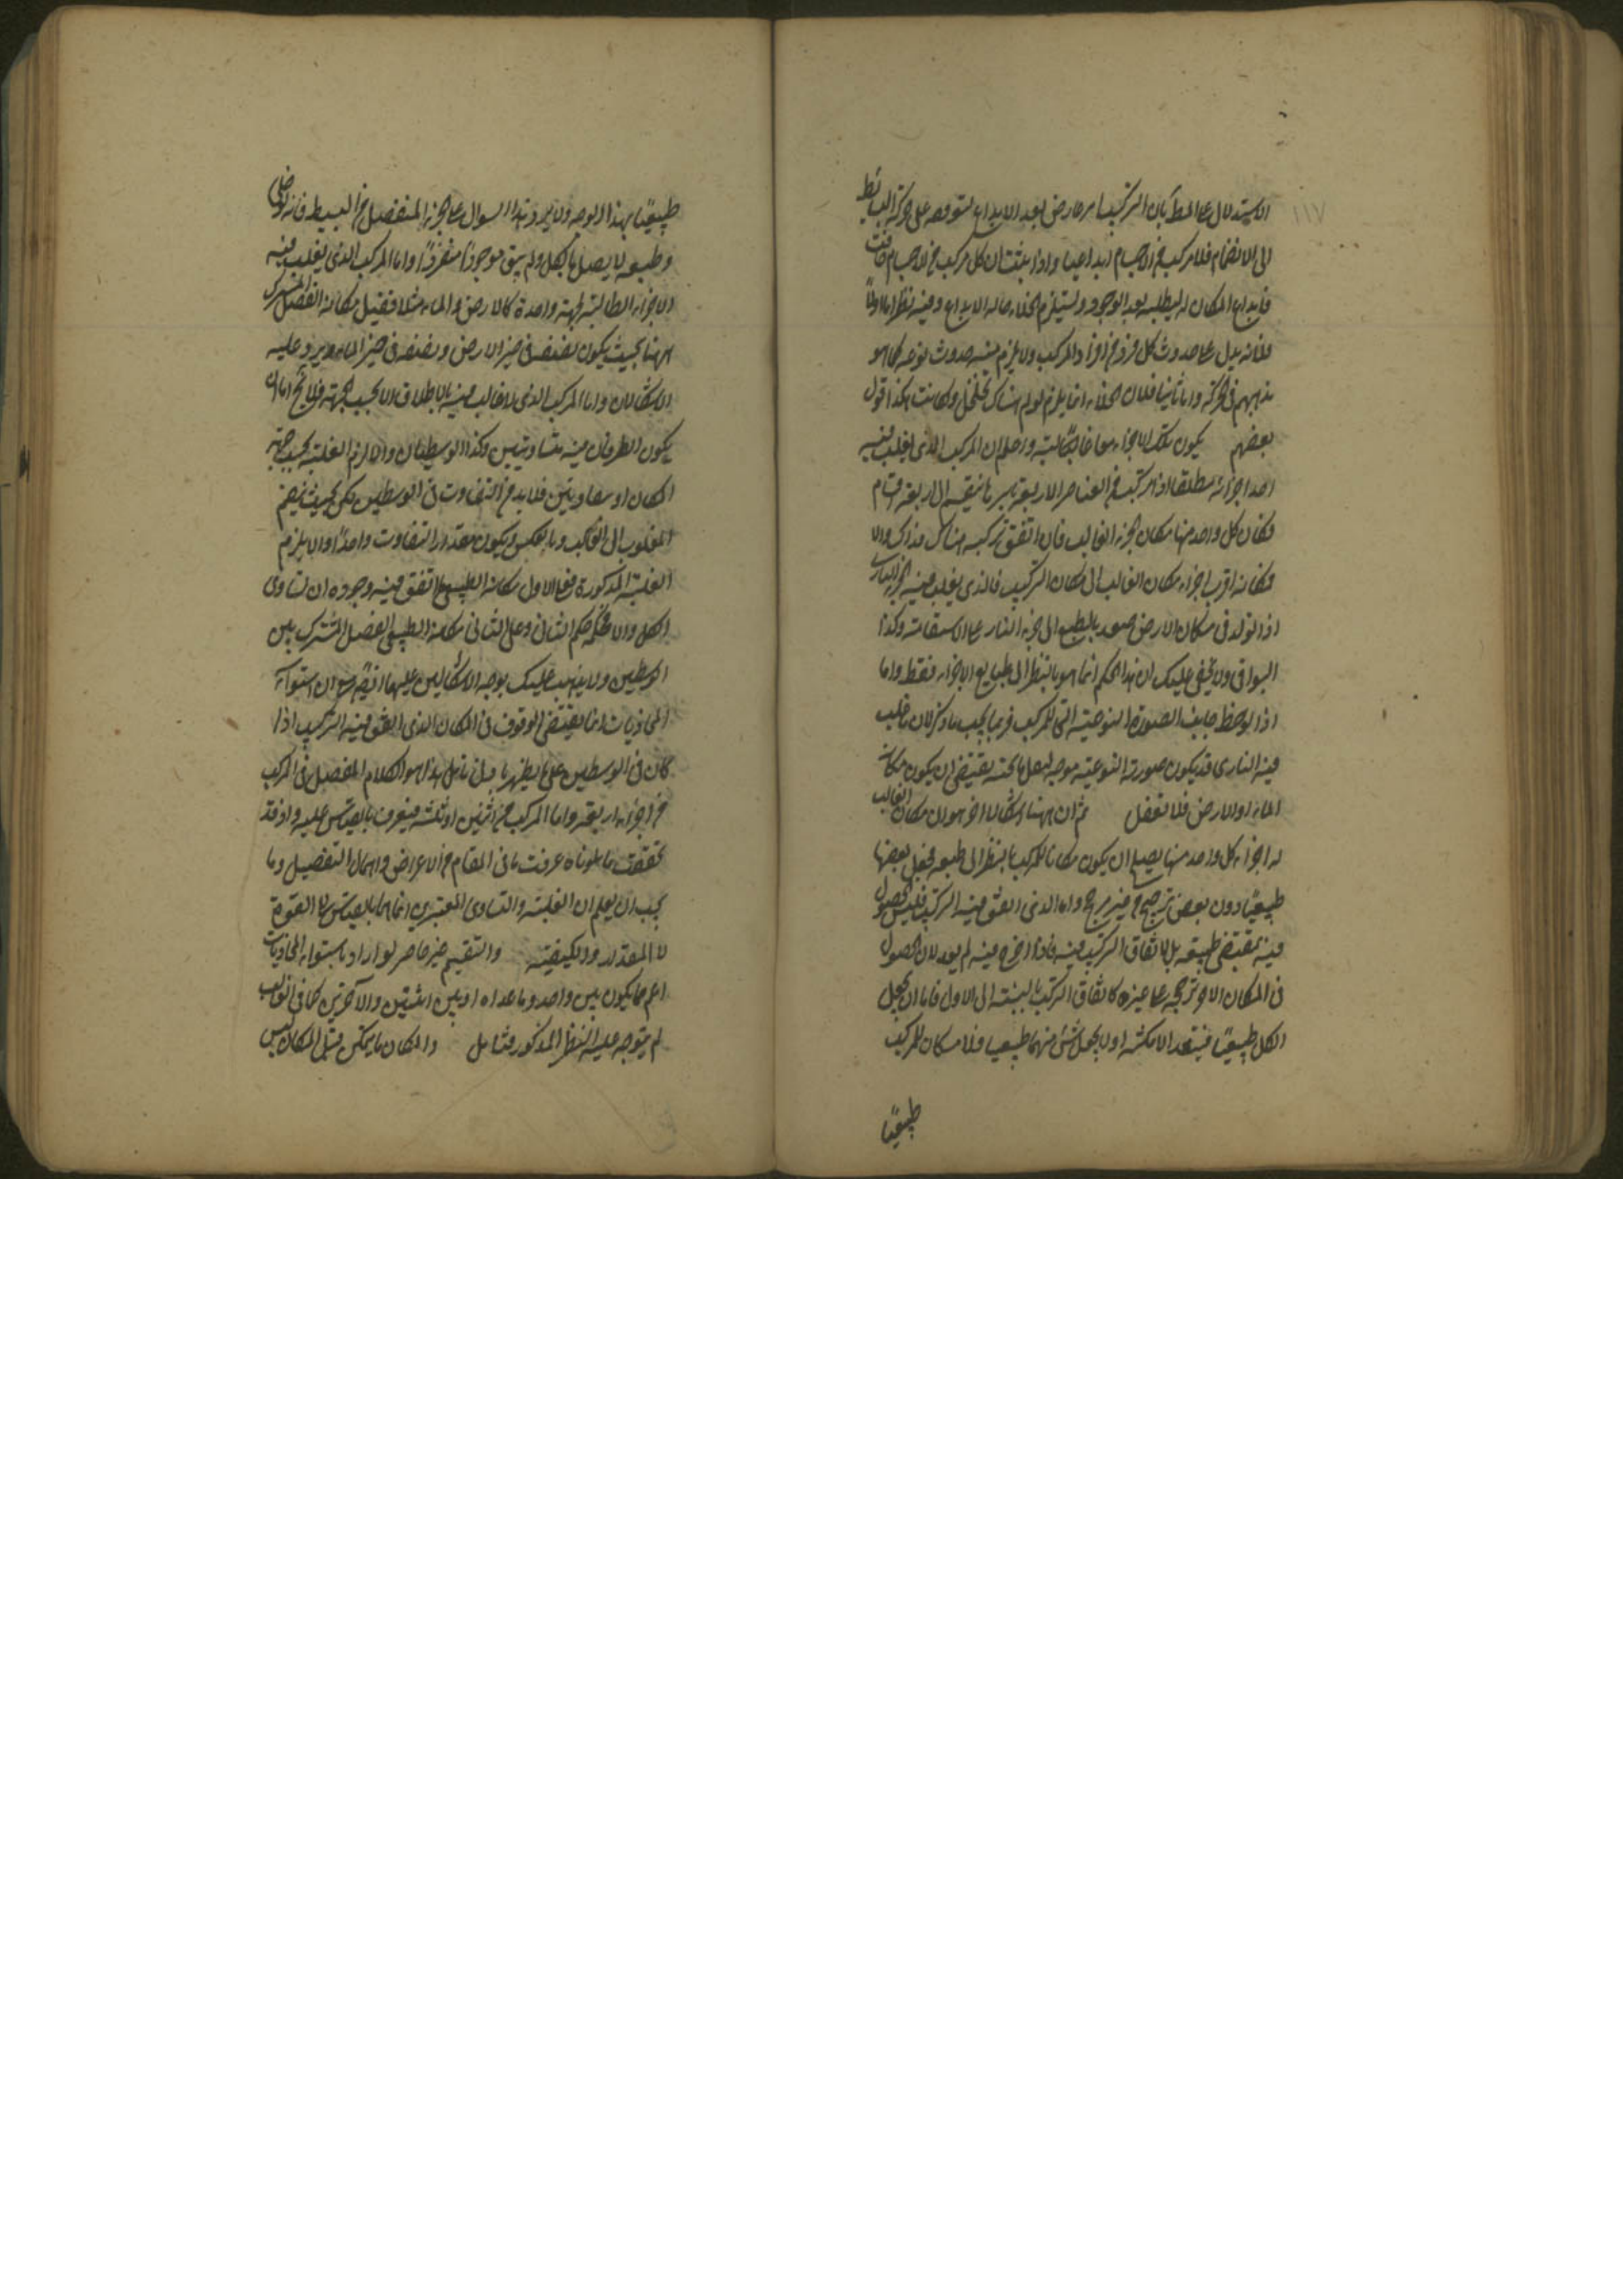 ١١٧
الاستدلال على المط بان التركيب امر عارض بعد الابداع لتوقفه على حركة البسائط
الى الانضمام فلا مركب في الاجسام ابداعيا واذا ثبت ان كل مركب في الاجسام فائت
فابداع المكان له ليطلبه بعد الوجود وليستلزم الخلاء حالة الابداع وفيه نظر اما اولا
فلانه يدل على حدوث كل فرد من افراد المركب ولا يلزم منه حدوث نوعه كما هو
مذهبهم في الحركة واما ثانيا فلان الخلاء انما يلزم لو لم هناك تخلخل وكانت هكذا اقول
بعضهم يكون تلك الاجزاء معا غالبة واعلم ان المركب الذي يغلب فيه
احد اجزائه مطلقا اذا تركب من العناصر الاربعة باسرها ينقسم الى اربعة اقسام
فكان كل واحد منها مكان الجزء الغالب فان اتفق تركبه هناك فذاك والا
فمكانه اقرب اجزاء مكان الغالب الى مكان التركيب فالذي يغلب فيه الجزء الناري
اذا تولد في مكان الارض صعد بالطبع الى جزء النار على الاستقامة وكذا
البواقي ولا يخفى عليك ان هذا الحكم انما هو بالنظر الى طبايع الاجزاء فقط واما
اذا لوحظ جانب الصورة النوعية التي للمركب فربما يجب ما ذكر لان ما غلب
فيه الناري قد يكون صورته النوعية موجبة لفعل ما بحيث يقتضي ان يكون مكانه
الماء او الارض فلا تغفل ثم ان ههنا اشكالا اخر هو ان مكان الغالب
له اجزاء كل واحد منها يصلح ان يكون مكانا للمركب بالنظر الى طبعه فجعل بعضها
طبيعيا دون بعض ترجيح من غير مرجح واما الذي اتفق فيه التركيب فليس الحصول
فيه بمقتضى طبيعته بل باتفاق التركيب فيه فاذا اخرج منه لم يعد لان الحصول
في المكان الاخر ترجحه على غيره كاتفاق التركيب بالنسبة الى الاول فاما ان يجعل
الكل طبيعيا فيتعدد الامكنة او لا يجعل شئ منهما طبيعيا فلا مكان للمركب
طبيعيا
طبيعيا بهذا الوجه ولا يرد هذا السوال على الجزء المنفصل من البسيط فانه لو خلى
وطبعه لا يصل بالكل ولم يبق موجودا منفردا واما المركب الذي يغلب فيه
الاجزاء الطالبة لجهة واحدة كالارض والماء مثلا فقيل مكانه الفصل المشترك
ههنا بحيث يكون نصفه في حيز الارض ونصفه في حيز الماء ويرد عليه
الاشكالان واما المركب الذي لا غالب فيه بالاطلاق الا بحسب الجهة فلا يخ اما ان
يكون الطرفان فيه متساويتين وكذا الوسطيان والا لزم الغلبة بحسب جهة
المكان او متفاوتين فلا بد من التفاوت في الوسطين لكن بحيث ينضم
المغلوب الى الغالب وبالعكس ويكون مقدار التفاوت واحدا والا يلزم
الغلبة المذكورة فعلى الاول مكانه الطبيعي ما اتفق فيه وجوده ان تساوى
الكل والا فحكمه حكم الثاني وعلى الثاني مكانه الطبيعي الفصل المشترك بين
الوسطين ولا يذهب عليك توجه الاشكالين عليهما ايضا مع ان استواء
المحاذيات انما يقتضي الوقوف في المكان الذي اتفق فيه التركيب اذا
كان في الوسطين على ما يظهر بادنى تامل هذا هو الكلام المفصل في المركب
من اجزاء اربعة واما المركب من اثنين او ثلثة فيعرف بالقياس عليه واذ قد
تحققت ما تلوناه عرفت ما في المقام من الاعراض واهمال التفصيل وما
يجب ان يعلم ان الغلبة والتساوي المعتبرين انما هما بالقياس الى القوة
لا المقدار والكيفية والتقسيم غير حاصر لو اراد باستواء المحاذيات
اعم مما يكون بين واحد وما عداه او بين اثنين والاخرين كما في الغالب
لم يتوجه عليه النظر المذكور فتامل والمكان ما يتمكن قيل المكان ليس